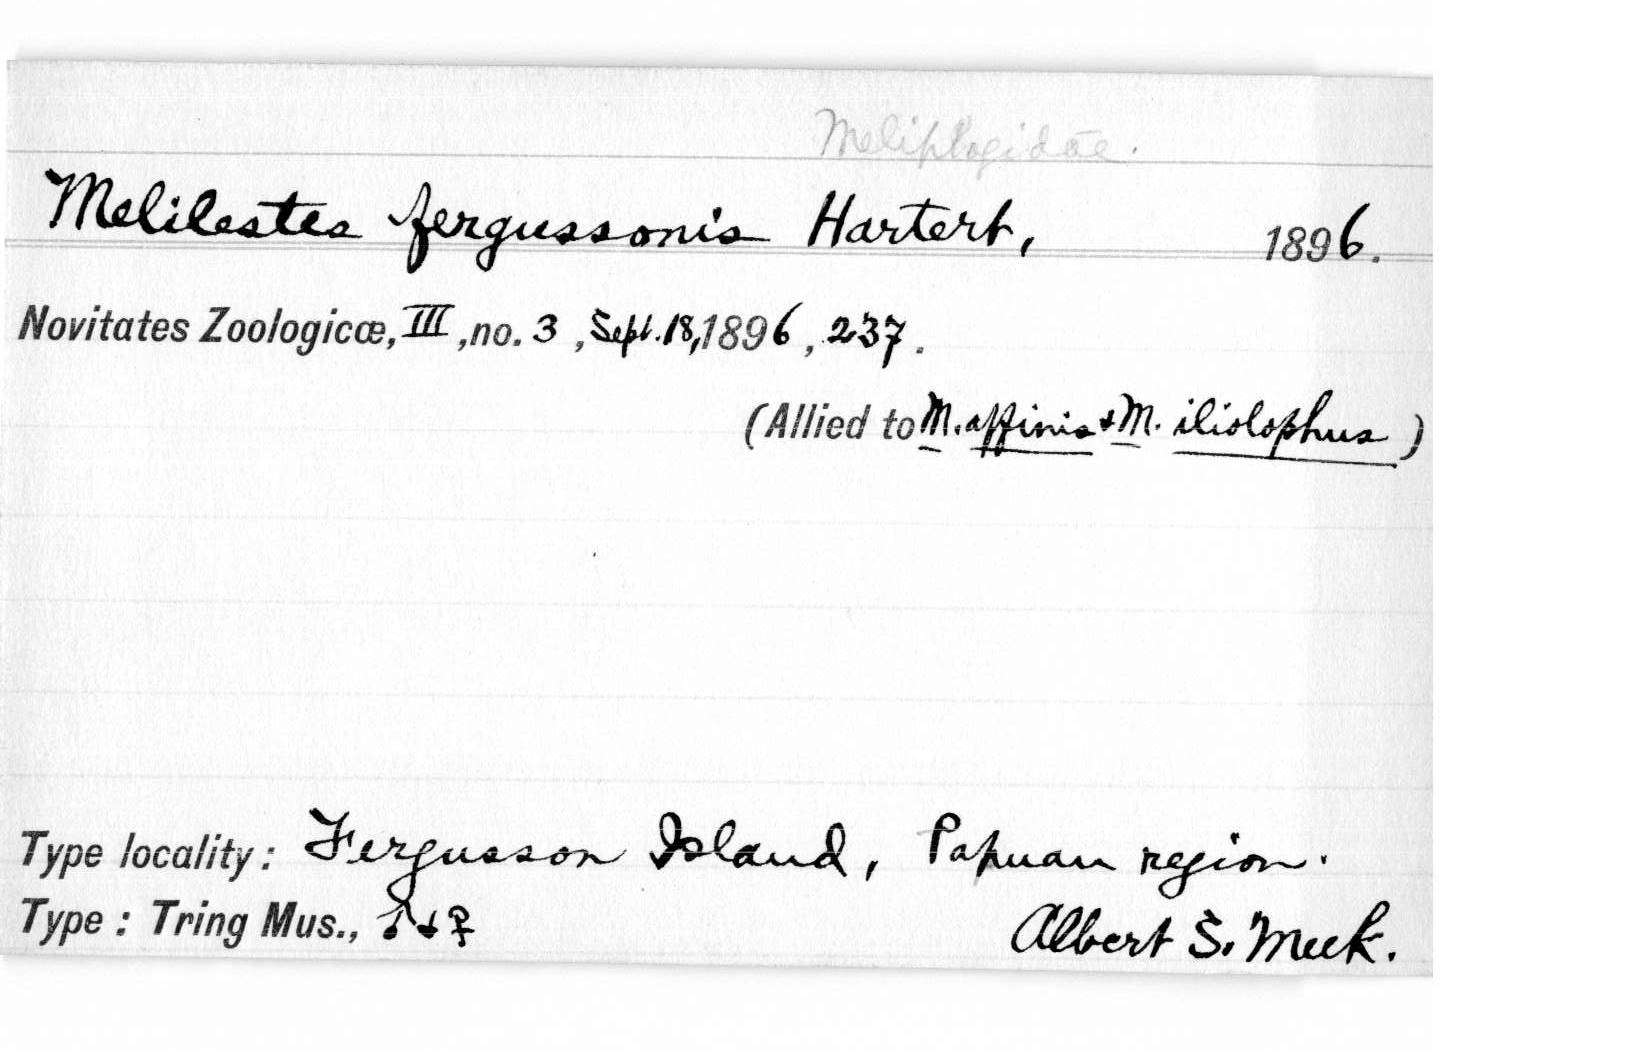 Meliphagidae.
Melilestes fergussonis Hartert, 1896.
Novitates Zoologicæ, III, no. 3, Sept. 18, 1896, 237.
(Allied to M. affinis & M. iliolophus)
Type locality: Fergusson Island, Papuan region.
Type: Tring Mus., ♂ & ♀ Albert S. Meek.